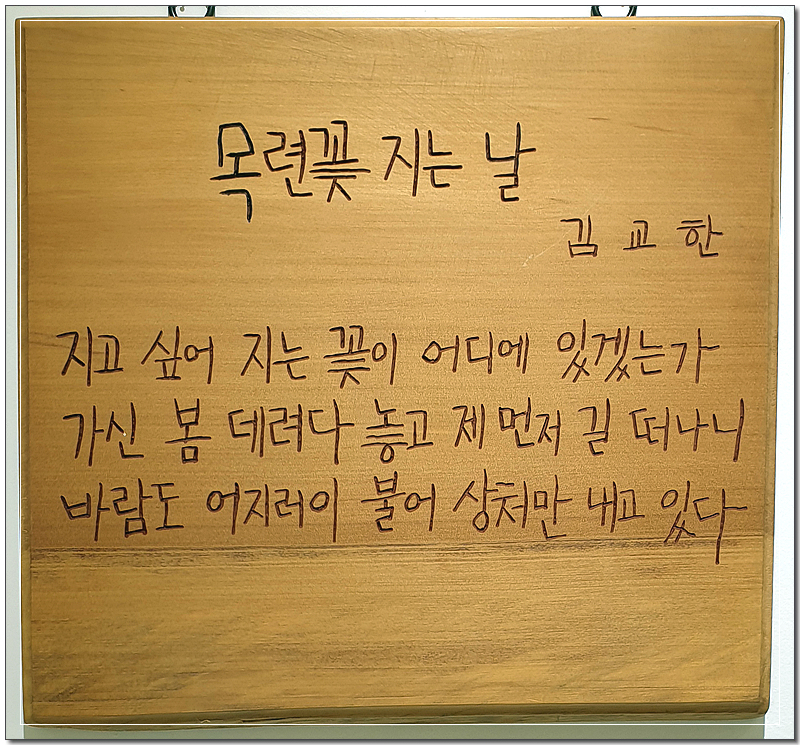 목련꽃 지는 날
김 교 한
지고 싶어 지는 꽃이 어디에 있겠는가
가신 봄 데려다 놓고 제 먼저 길 떠나니
바람도 어지러이 불어 상처만 내고 있다